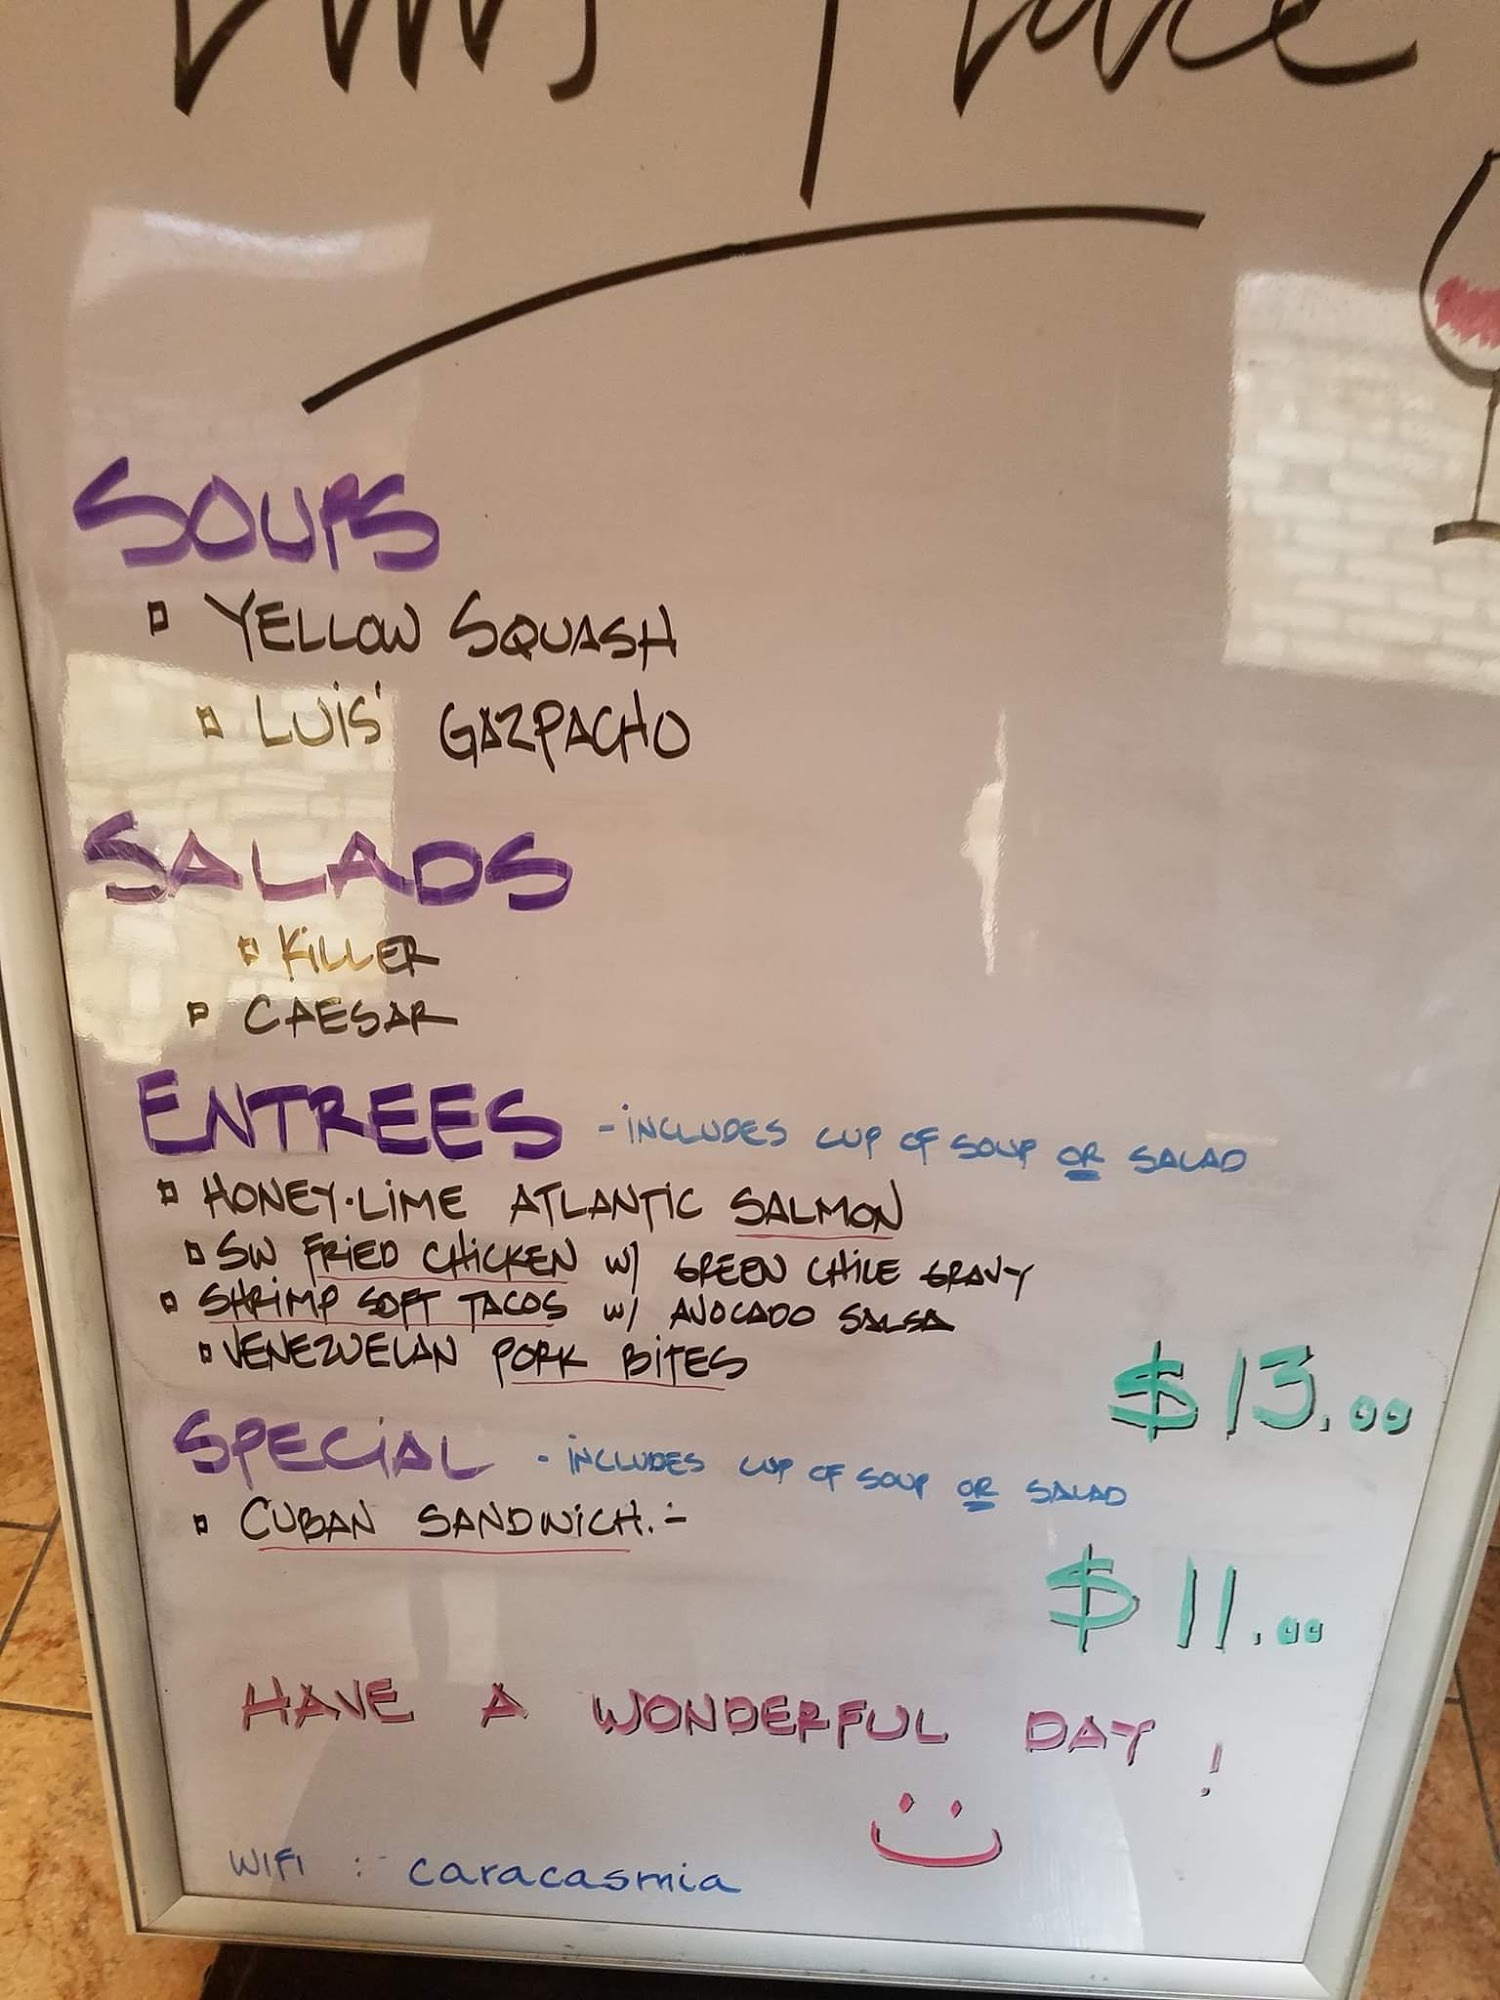 Place
SOUPS
YELLOW SQUASH
LUIS' GAZPACHO
SALADS
KILLER
CAESAR
ENTREES - INCLUDES CUP OF SOUP OR SALAD
HONEY-LIME ATLANTIC SALMON
SW FRIED CHICKEN W/ GREEN CHILE GRAVY
SHRIMP SOFT TACOS W/ AVOCADO SALSA
VENEZUELAN PORK BITES
$13.00
SPECIAL - INCLUDES CUP OF SOUP OR SALAD
CUBAN SANDWICH.-
$11.00
HAVE A WONDERFUL DAY!
WIFI : caracasmia